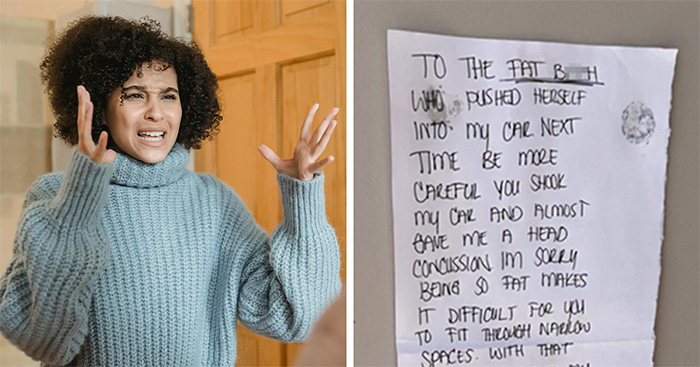 TO THE FAT B H
WHO PUSHED HERSELF
INTO MY CAR NEXT
TIME BE MORE
CAREFUL YOU SHOOK
MY CAR AND ALMOST
GAVE ME A HEAD
CONCUSSION IM SORRY
BEING SO FAT MAKES
IT DIFFICULT FOR YOU
TO FIT THROUGH NARROW
SPACES. WITH THAT